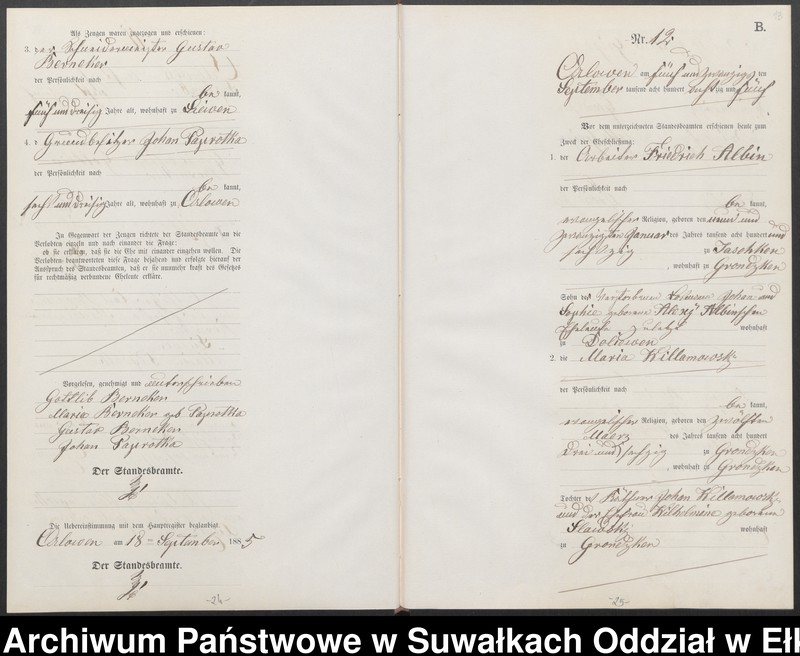 Als Zeugen waren zugezogen und erschienen:
3. der Schneidermeister Gustav
Berneker
der Persönlichkeit nach
be kannt,
fünf und dreißig Jahre alt, wohnhaft zu
4. d Grundbesitzer Johan Paprotka
der Persönlichkeit nach
be kannt,
sech und dreißig Jahre alt, wohnhaft zu Orlowen
In Gegenwart der Zeugen richtete der Standesbeamte an die
Verlobten einzeln und nach einander die Frage:
ob sie erklären, daß sie die Ehe mit einander eingehen wollen. Die
Verlobten beantworteten diese Frage bejahend und erfolgte hierauf der
Ausspruch des Standesbeamten, daß er sie nunmehr kraft des Gesetzes
für rechtmäßig verbundene Eheleute erkläre.
Vorgelesen, genehmigt und unterschrieben
Gottlib Berneker
Maria Berneker geb Paprotka
Gustav Berneker
Johan Paprotka
Der Standesbeamte.
Die Uebereinstimmung mit dem Hauptregister beglaubigt.
Orlowen am 18 ten September 1885
Der Standesbeamte.
-24-
B.
Nr. 12
Orlowen am fünf und zwanzig ten
September tausend acht hundert achtzig und fünf
Vor dem unterzeichneten Standesbeamten erschienen heute zum
Zweck der Eheschließung:
1. der Arbeiter Friedrich Albin
der Persönlichkeit nach
be kannt,
evangelischer Religion, geboren den neun und
zwanzigsten Januar des Jahres tausend acht hundert
zu Jaschken
, wohnhaft zu Grondzken
Sohn des verstorbenen Johan und
Sophie geborene Albinschen
Eheleute zuletzt wohnhaft
zu
2. die Maria Killamowski
der Persönlichkeit nach
be kannt,
evangelischer Religion, geboren den zwölften
Maerz des Jahres tausend acht hundert
drei und sechzig zu Grondzken
, wohnhaft zu Grondzken
Tochter des Johan Killamowski
und der Ehefrau Wilhelmine geborene
wohnhaft
zu Grondzken
-25-
Archiwum Państwowe w Suwałkach Oddział w Ełk